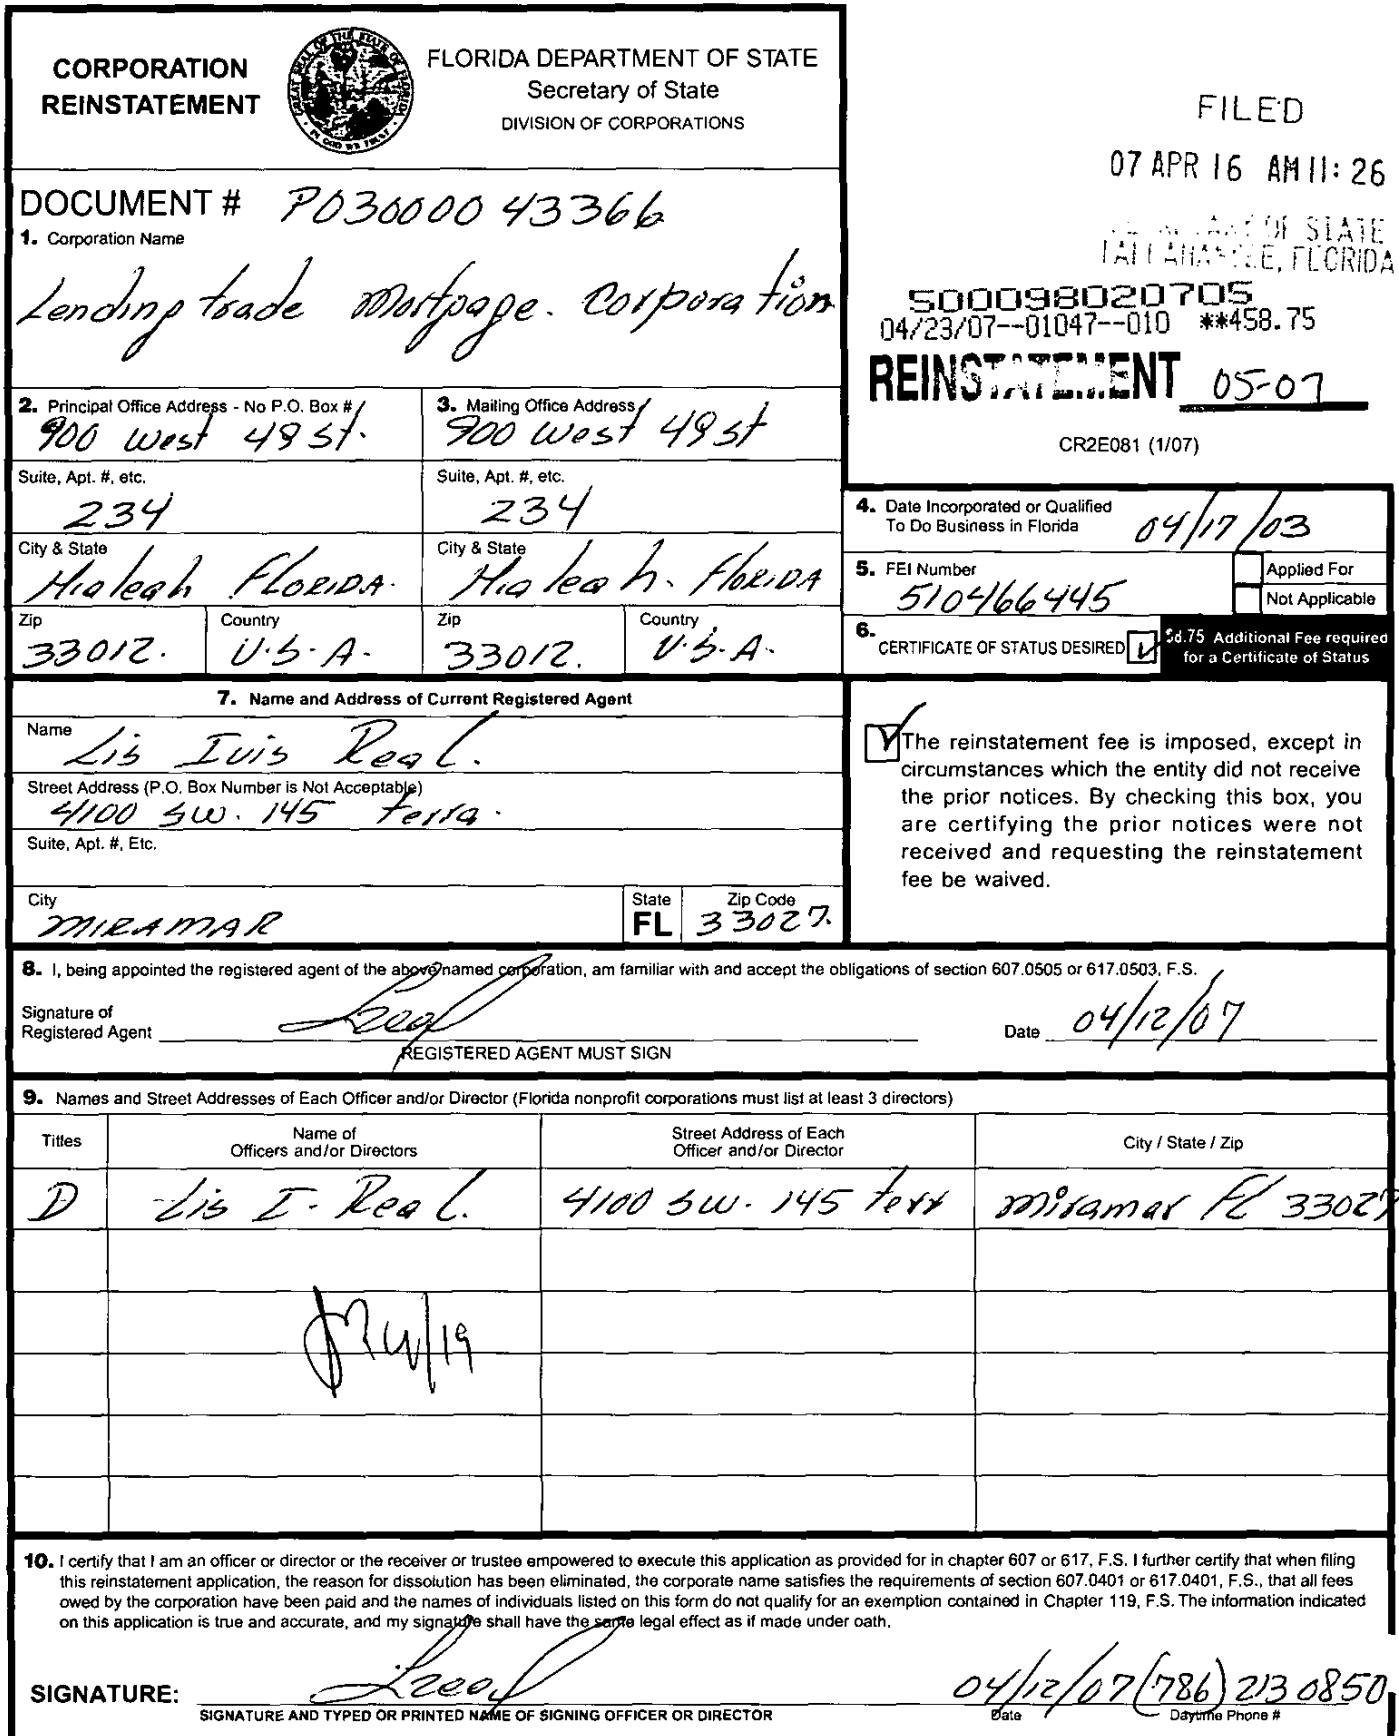 CORPORATION
REINSTATEMENT
FLORIDA DEPARTMENT OF STATE
Secretary of State
DIVISION OF CORPORATIONS
FILED
07 APR 16 AM 11:26
OF STATE
TALLAHASSEE, FLORIDA
DOCUMENT # P03000043366
1. Corporation Name
Lending trade Mortgage. Corporation
500098020705
04/23/07--01047--010 **458.75
REINSTATEMENT 05-07
CR2E081 (1/07)
2. Principal Office Address - No P.O. Box #
900 West 49 St.
3. Mailing Office Address
900 West 49 St
Suite, Apt. #, etc.
234
Suite, Apt. #, etc.
234
City & State
Hialeah FLORIDA.
City & State
Hialeah. FLORIDA
Zip
33012.
Country
U.S.A.
Zip
33012.
Country
U.S.A.
4. Date Incorporated or Qualified
To Do Business in Florida 04/17/03
5. FEI Number
510466445
Applied For
Not Applicable
6. CERTIFICATE OF STATUS DESIRED
$8.75 Additional Fee required
for a Certificate of Status
7. Name and Address of Current Registered Agent
Name
Lis Ivis Real.
Street Address (P.O. Box Number is Not Acceptable)
4100 SW. 145 terra.
Suite, Apt. #, Etc.
City
MIRAMAR
State
FL
Zip Code
33027.
The reinstatement fee is imposed, except in
circumstances which the entity did not receive
the prior notices. By checking this box, you
are certifying the prior notices were not
received and requesting the reinstatement
fee be waived.
8. I, being appointed the registered agent of the above named corporation, am familiar with and accept the obligations of section 607.0505 or 617.0503, F.S.
Signature of
Registered Agent
Date 04/12/07
REGISTERED AGENT MUST SIGN
9. Names and Street Addresses of Each Officer and/or Director (Florida nonprofit corporations must list at least 3 directors)
Titles
Name of
Officers and/or Directors
Street Address of Each
Officer and/or Director
City / State / Zip
D Lis I. Real. 4100 SW. 145 terr Miramar FL 33027
10. I certify that I am an officer or director or the receiver or trustee empowered to execute this application as provided for in chapter 607 or 617, F.S. I further certify that when filing
this reinstatement application, the reason for dissolution has been eliminated, the corporate name satisfies the requirements of section 607.0401 or 617.0401, F.S., that all fees
owed by the corporation have been paid and the names of individuals listed on this form do not qualify for an exemption contained in Chapter 119, F.S. The information indicated
on this application is true and accurate, and my signature shall have the same legal effect as if made under oath.
SIGNATURE: 04/12/07 (786) 213 0850
SIGNATURE AND TYPED OR PRINTED NAME OF SIGNING OFFICER OR DIRECTOR
Date
Daytime Phone #